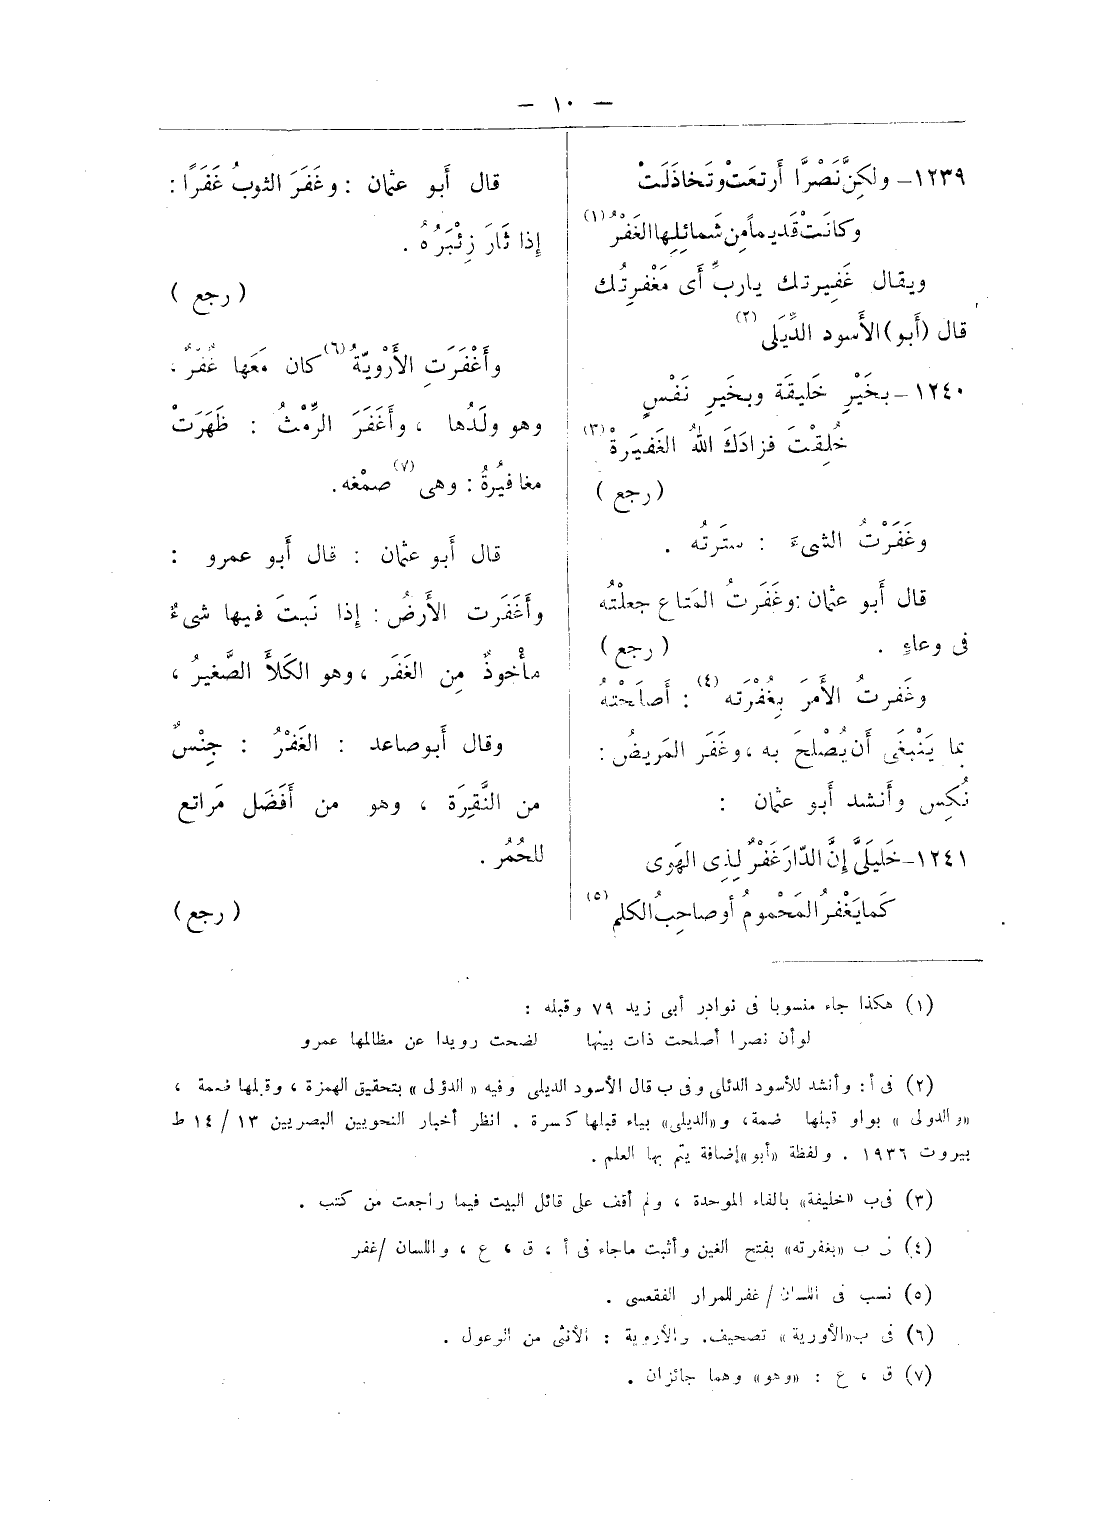 — ١٠ —
١٢٣٩ – ولكنَّ نَصْرًا أرتعَتْ وتَخاذَلَتْ
وكانَتْ قَديماً مِن شَمائِلِها الغَفْرُ (١)
ويقال غَفِيرتك ياربِّ أى مَغْفرتُك
قال (أبو) الأَسود الدِّيَلى (٢)
١٢٤٠ – بخَيْرِ خَليقَة وبخَيرِ نَفْسٍ
خُلِقْتَ فزادَكَ اللهُ الغَفيَرةْ (٣)
(رجع)
وغَفَرْتُ الشىءَ : سترتُه .
قال أَبو عثمان : وغَفَرتُ المَتاع جعلْتُه
فى وعاءٍ . (رجع)
وغَفرتُ الأَمرَ بِغُفْرَته (٤) : أَصلَحْتهُ
بما يَنْبغَى أَن يُصْلحَ به ، وغَفَر المَريضُ :
نُكِس وأَنشد أَبو عثمان :
١٢٤١ – خَلِيلَىَّ إِنَّ الدّارَ غَفْرٌ لِذِى الهَوى
كَما يَغْفرُ المَحْمومُ أَو صاحِبُ الكلم (٥)
قال أَبو عثمان : وغَفَرَ الثوبُ غَفَرًا :
إِذا ثَارَ زِئْبَرُهُ .
(رجع)
وأَغْفَرَتِ الأَرْوِيّةُ (٦) كان مَعَها غُفرٌ ،
وهو ولَدُها ، وأَغَفَرَ الرِّمْثُ : ظَهَرَتْ
مغافيُرهُ : وهى (٧) صمْغه .
قال أَبو عثمان : قال أَبو عمرو :
وأَغَفَرت الأَرضُ : إِذا نَبتَ فيها شىءٌ
مأْخوذٌ مِن الغَفَر ، وهو الكَلأَ الصَّغيرُ ،
وقال أَبو صاعد : الغَفْرُ : جِنْسٌ
من النَّقِرَة ، وهو من أَفَضَل مَراتع
للحُمُر .
(رجع)
(١) هكذا جاء منسوبا فى نوادر أبى زيد ٧٩ وقبله :
لو أن نصرا أصلحت ذات بينها لضحت رويدا عن مظالمها عمرو
(٢) فى أ : وأنشد للأسود الدئلى وفى ب قال الأسود الديلى وفيه « الدؤلى » بتحقيق الهمزة ، وقبلها ضمة ،
«والدولى » بواو قبلها ضمة، و«الديلى» بياء قبلها كسرة . انظر أخبار النحويين البصريين ١٣ / ١٤ ط
بيروت ١٩٣٦ . ولفظة «أبو» إضافة يتم بها العلم .
(٣) فى ب «خليفة» بالفاء الموحدة ، ولم أقف على قائل البيت فيما راجعت من كتب .
(٤) فى ب «بغفرته» بفتح الغين وأثبت ماجاء فى أ ، ق ، ع ، واللسان /غفر
(٥) نسب فى اللسان / غفر للمرار الفقعسى .
(٦) فى ب «الأورية» تصحيف. والأروية : الأنثى من الوعول .
(٧) ق ، ع : «وهو» وهما جائزان .